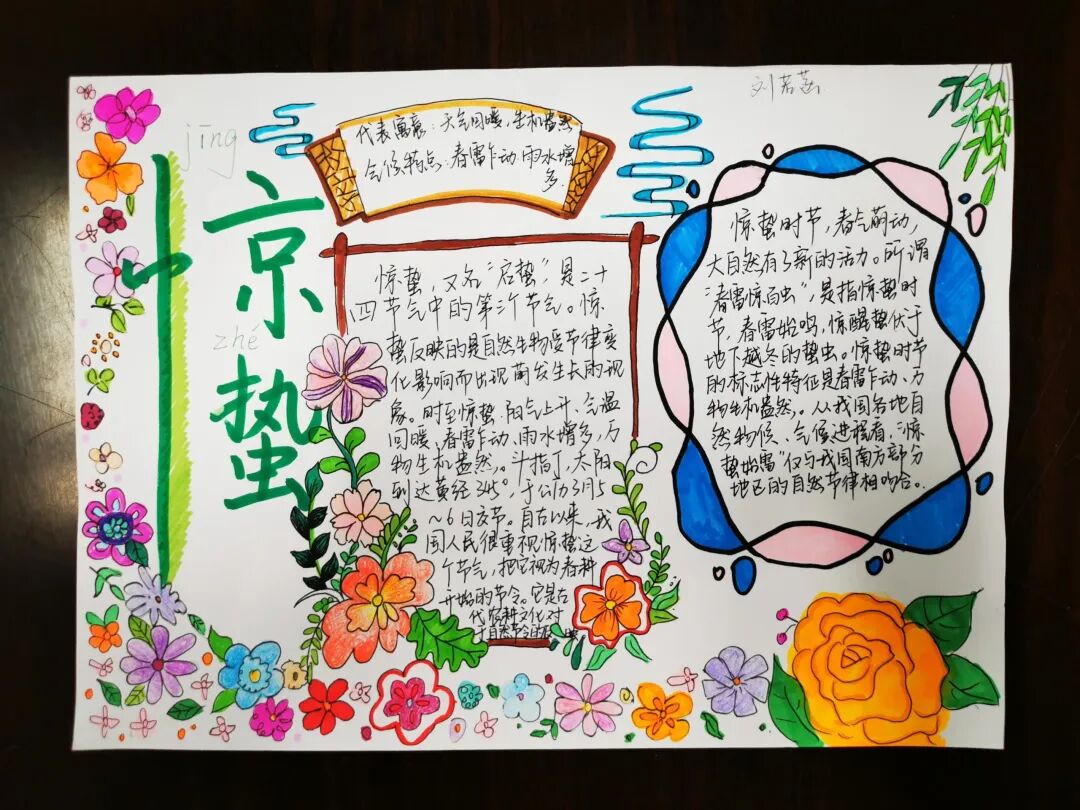 刘若菡
jīng
zhé
惊
蛰
代表寓意：天气回暖，生机盎然
气候特点：春雷乍动 雨水增
多.
惊蛰，又名“启蛰”，是二十
四节气中的第三个节气。惊
蛰反映的是自然生物受节律变
化影响而出现萌发生长的现
象。时至惊蛰，阳气上升、气温
回暖、春雷乍动、雨水增多，万
物生机盎然。斗指丁，太阳
到达黄经345°，于公历3月5
～6日交节。自古以来，我
国人民很重视惊蛰这
个节气，把它视为春耕
开始的节令。它是古
代农耕文化对
于自然节令的
惊蛰时节，春气萌动，
大自然有了新的活力。所谓
“春雷惊百虫”，是指惊蛰时
节，春雷始鸣，惊醒蛰伏于
地下越冬的蛰虫。惊蛰时节
的标志性特征是春雷乍动、万
物生机盎然。从我国各地自
然物候、气候进程看，“惊
蛰始雷”仅与我国南方部分
地区的自然节律相吻合。